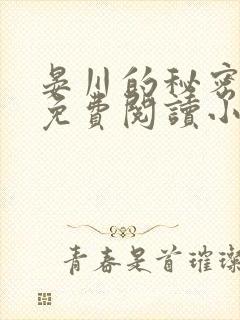 晏川的秘密
免費閱讀小
青春是首璀璨